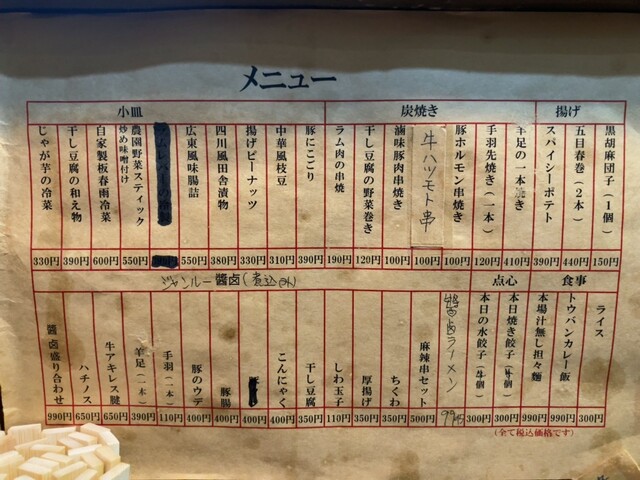 メニュー
小皿
じゃが芋の冷菜
330円
干し豆腐の和え物
390円
自家製板春雨冷菜
600円
農園野菜スティック
炒め味噌付け
550円
広東風味腸詰
550円
四川風田舎漬物
380円
揚げピーナッツ
330円
中華風枝豆
310円
豚にこごり
390円
炭焼き
ラム肉の串焼
190円
干し豆腐の野菜巻き
120円
滷味豚肉串焼き
100円
牛ハツモト串
100円
豚ホルモン串焼き
100円
手羽先焼き(一本)
120円
羊足の一本焼き
410円
揚げ
スパイシーポテト
390円
五目春巻(2本)
440円
黒胡麻団子(1個)
150円
ジャンルー醬卤(煮込み)
醬卤盛り合わせ
990円
ハチノス
650円
牛アキレス腱
650円
羊足(一本)
390円
手羽(一本)
110円
豚のウデ
400円
豚腸
400円
400円
こんにゃく
400円
干し豆腐
350円
しわ玉子
110円
厚揚げ
350円
ちくわ
350円
麻辣串セット
500円
醬卤ラーメン
990円
点心
本日の水餃子(4個)
300円
本日焼き餃子(4個)
300円
食事
本場汁無し担々麺
990円
トウバンカレー飯
990円
ライス
300円
(全て税込価格です)